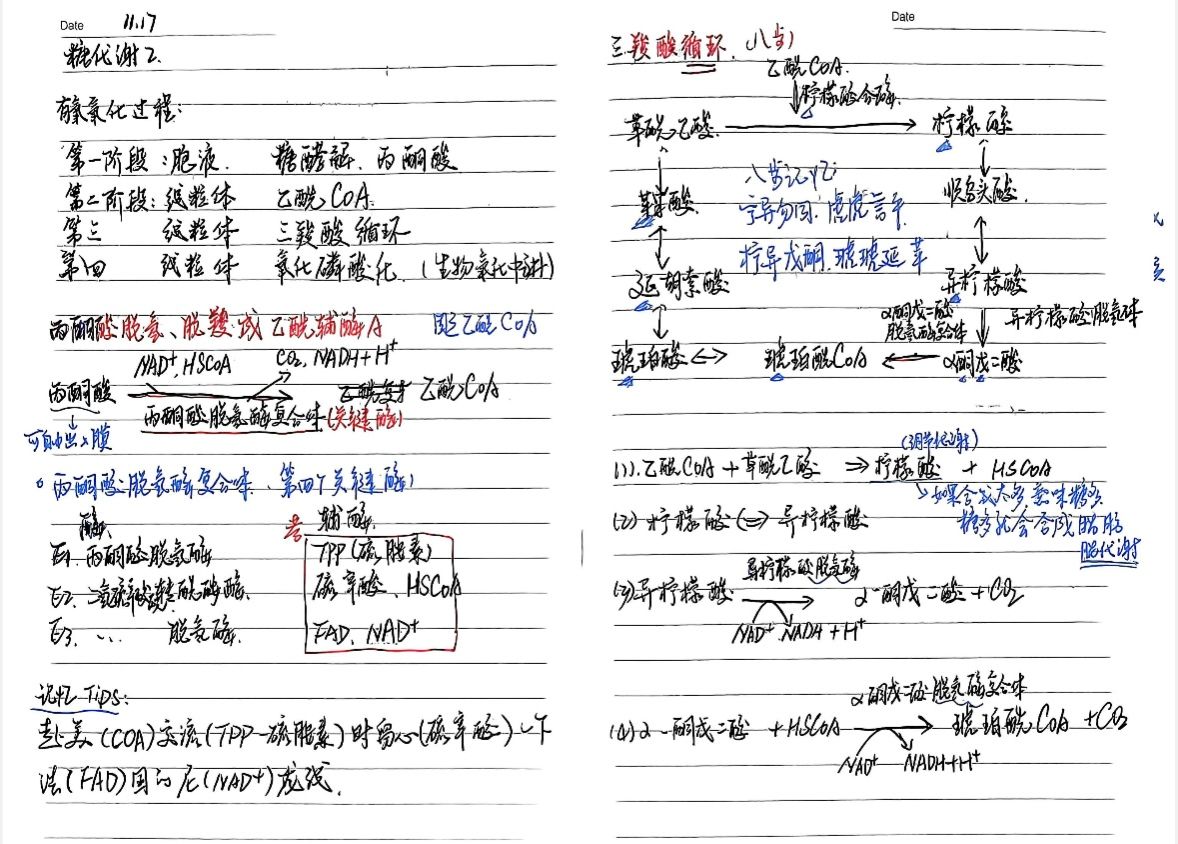 Date 11.17
糖代谢2.
有氧氧化过程:
第一阶段:胞液. 糖酵解. 丙酮酸
第二阶段:线粒体 乙酰CoA.
第三 线粒体 三羧酸循环
第四 线粒体 氧化磷酸化. (生物氧化中讲)
丙酮酸脱氢、脱羧成乙酰辅酶A 即乙酰CoA
NAD⁺, HSCoA CO₂, NADH+H⁺
丙酮酸 乙酰CoA
丙酮酸脱氢酶复合体(关键酶)
可自由出入膜
丙酮酸脱氢酶复合体. 第四个关键酶)
酶. 考 辅酶.
E1. 丙酮酸脱氢酶 TPP(硫胺素)
E2. 二氢硫辛酰胺转乙酰酶. 硫辛酸、HSCoA
E3. ... 脱氢酶. FAD. NAD⁺
记忆Tips:
赴美(COA)交流(TPP-硫胺素)时留心(硫辛酸)以下
法(FAD)国的尼(NAD⁺)龙线.
Date
三羧酸循环. 八步)
乙酰CoA.
柠檬酸合酶.
草酰乙酸. 柠檬酸
八步记忆: 顺乌头酸.
苹果酸 宁异勿同. 虎虎言平.
柠异戊酮. 琥琥延苹
延胡索酸 异柠檬酸
α酮戊二酸脱氢酶复合体 异柠檬酸脱氢酶
琥珀酸 ⇔ 琥珀酰CoA α酮戊二酸
(调节代谢)
(1).乙酰CoA + 草酰乙酸 ⇒ 柠檬酸 + HSCoA
如果合成太多,意味糖多
(2) 柠檬酸 ⇔ 异柠檬酸 糖多就会合成脂肪
脂代谢
异柠檬酸脱氢酶
(3)异柠檬酸 α-酮戊二酸 + CO₂
NAD⁺ NADH + H⁺
α酮戊二酸脱氢酶复合体
(4) α-酮戊二酸 + HSCoA 琥珀酰CoA + CO₂
NAD⁺ NADH+H⁺